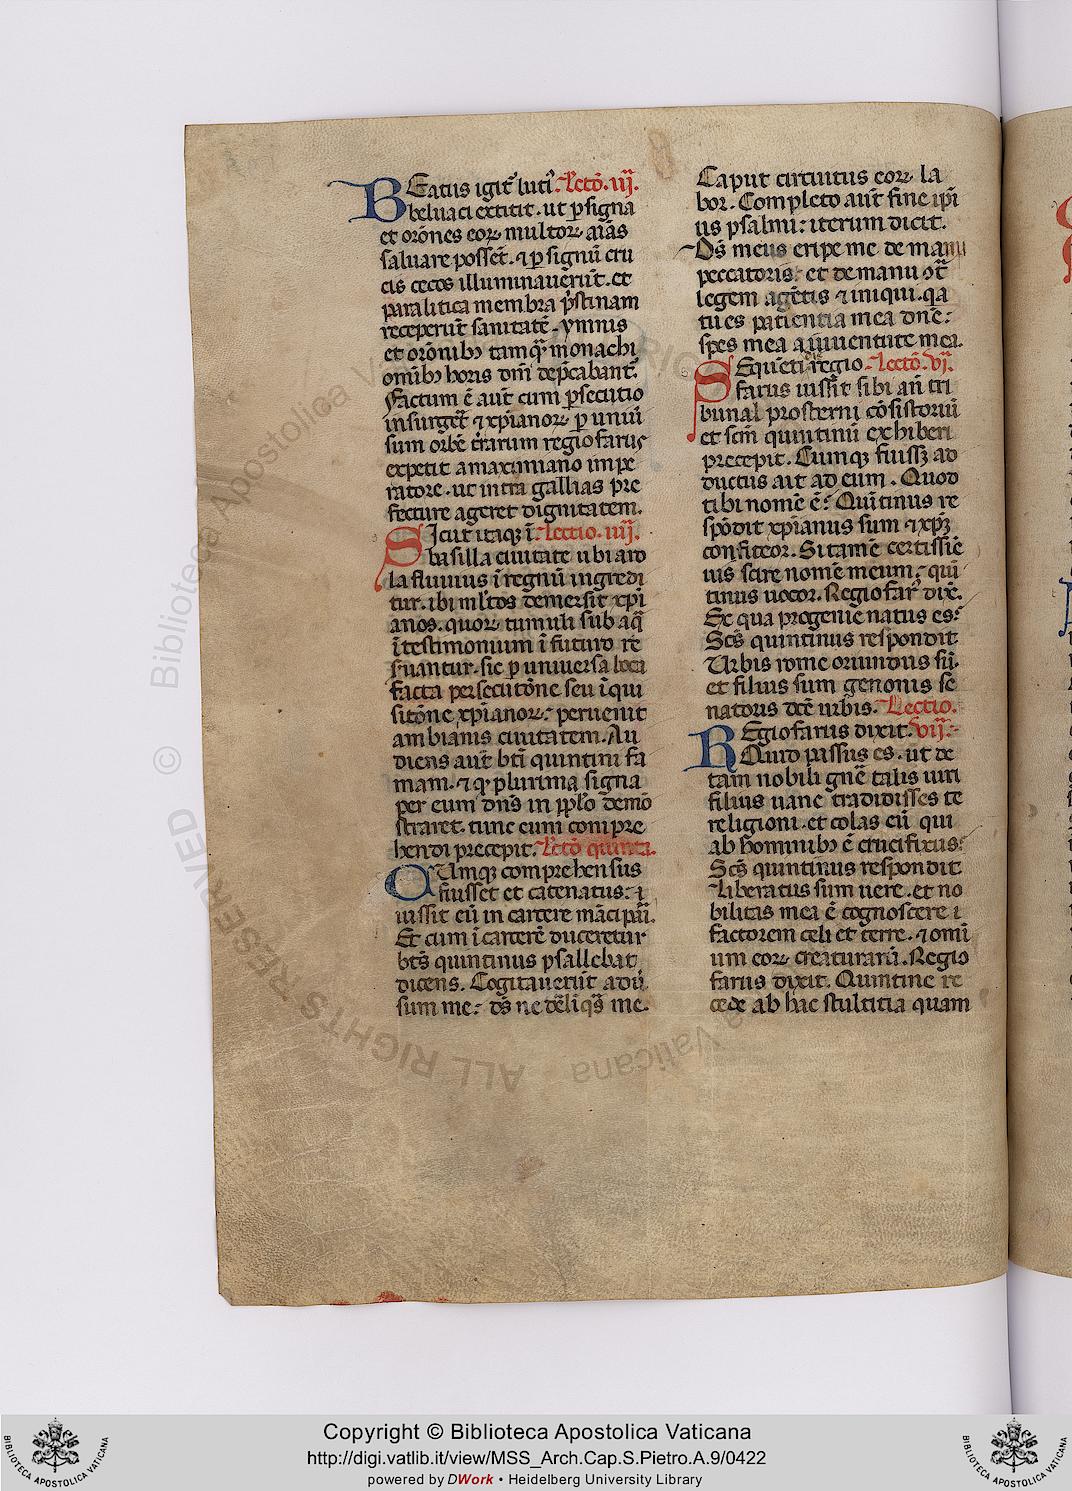 BEatus igit̃ luci⁹. Lectõ. iij.
beluaci extitit. ut p̲ signa
et orõnes eoꝝ multoꝝ aĩas
saluare posset̃. ⁊ p̲ signũ cru
cis cecos illuminauer̃ũt. et
paralitica membra p̃stinam
receperũt sanitatẽ. ymnis
et orõnibꝫ tamꝙ̃ monachi
omĩbꝫ horis dñm dep̃cabant̃.
Factum ẽ aut̃ cum p̲secutio
insurget̃ ⁊ xp̃ianoꝝ p̲ uniũ
sum orbẽ t̃rarum regiofarus
expetit a maximiano impe
ratore. ut intra gallias pre
fecture ageret dignitatem.
SIcut itaqꝫ ĩ. Lectio. iiij.
basilla ciuitate ubi aro
la fluuius ĩ regnũ ingredi
tur. ibi ml̃tos demersit xp̃i
anos. quoꝝ tumuli sub aq̃
ĩ testimonium ĩ futuro re
s̃uantur. sic p̲ uniuersa loca
facta persecutõne seu ĩqui
sitõne xp̃ianoꝝ: peruenit
ambianis ciuitatem. Au
diens aut̃ bt̃i quintini fa
mam. ⁊ ꝙ plurima signa
per eum dñs in pp̃lo demõ
straret. tunc eum compre
hendi precepit. Lectõ quinta.
CUmqꝫ comprehensus
fuisset et catenatus: ⁊
iussit eũ in carcere mãcipãri.
Et cum ĩ carcerẽ duceretur
bt̃s quintinus psallebat
dicens. Cogitauerũt aduẽ
sum me: dñs ne dẽliq̃s me.
Caput circuitus eoꝝ la
bor. Completo aut̃ fine ip̃i
us psalmi: iterum dicit.
Dñs meus eripe me de manu
peccatoris: et de manu ↄt̃
legem agẽtis ⁊ iniqui. qa
tu es patientia mea dñe:
spes mea a iuuentute mea.
SEquẽti regio Lectõ. vj.
farus iussit sibi añ tri
bunal prosterni cõsistoriũ
et scm̃ quintinũ exhiberi
precepit. Cumqꝫ fuissꝫ ad
ductus ait ad eum. Quod
tibi nomẽ ẽ: Quĩtinus re
spõdit xp̃ianus sum ⁊ xp̃ꝫ
confiteor. Si tamẽ certissiẽ
uis scire nomẽ meum: quĩ
tinus uocor. Regiofar⁹ dix̃.
Ex qua progenie natus es:
Scs̃ quintinus respondit
Urbis rome oriundus sũ.
et filius sum genonis se
natoris dcẽ urbis. Lectio.
REgiofarus dixit. vij.
Quid passus es. ut de
tam nobili gnẽ talis uiri
filius uane tradidisses te
religioni. et colas eũ qui
ab hominibꝫ ẽ crucifixus:
Scs̃ quintinus respondit
Liberatus sum uere. et no
bilitas mea ẽ cognoscere ĩ
factorem celi et terre. ⁊ omĩ
um eoꝝ creaturarũ. Regio
farus dixit. Quintine re
cede ab hac stultitia quam
Copyright © Biblioteca Apostolica Vaticana
http://digi.vatlib.it/view/MSS_Arch.Cap.S.Pietro.A.9/0422
powered by DWork • Heidelberg University Library
BIBLIOTECA APOSTOLICA VATICANA
BIBLIOTECA APOSTOLICA VATICANA
© Biblioteca Apostolica Vaticana
ALL RIGHTS RESERVED